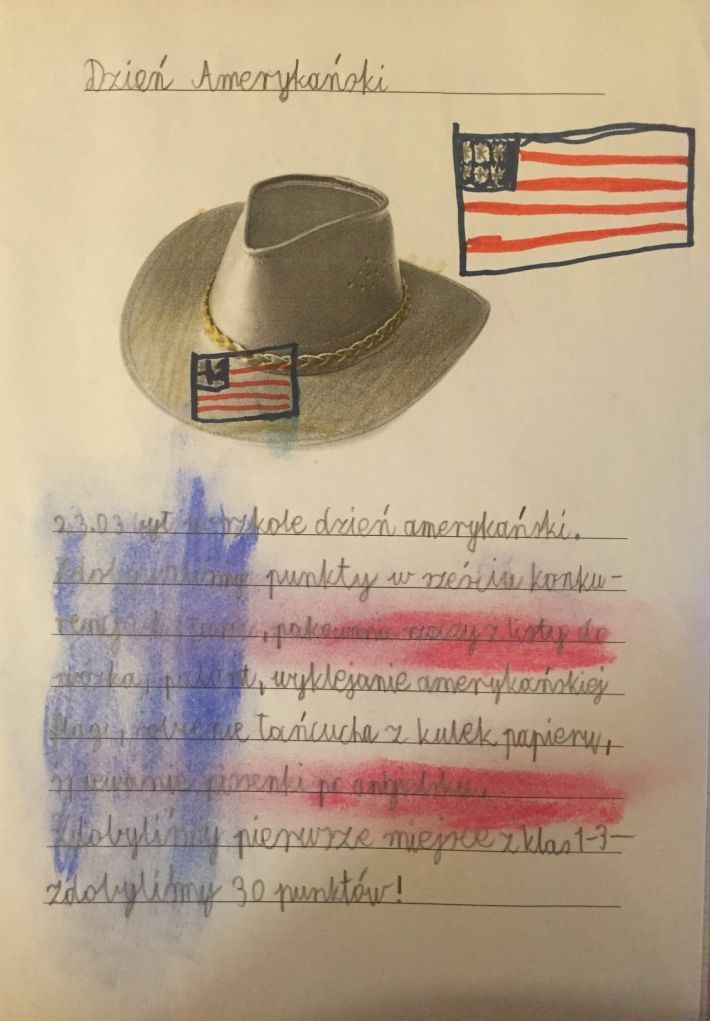 Dzień Amerykański
23.03 był w szkole dzień amerykański.
Zdobywaliśmy punkty w sześciu konku-
rencjach: , pakowanie rzeczy z listy do
worka, palant, wyklejanie amerykańskiej
flagi, robienie łańcucha z kulek papieru,
śpiewanie piosenki po angielsku.
Zdobyliśmy pierwsze miejsce z klas 1-3-
zdobyliśmy 30 punktów!